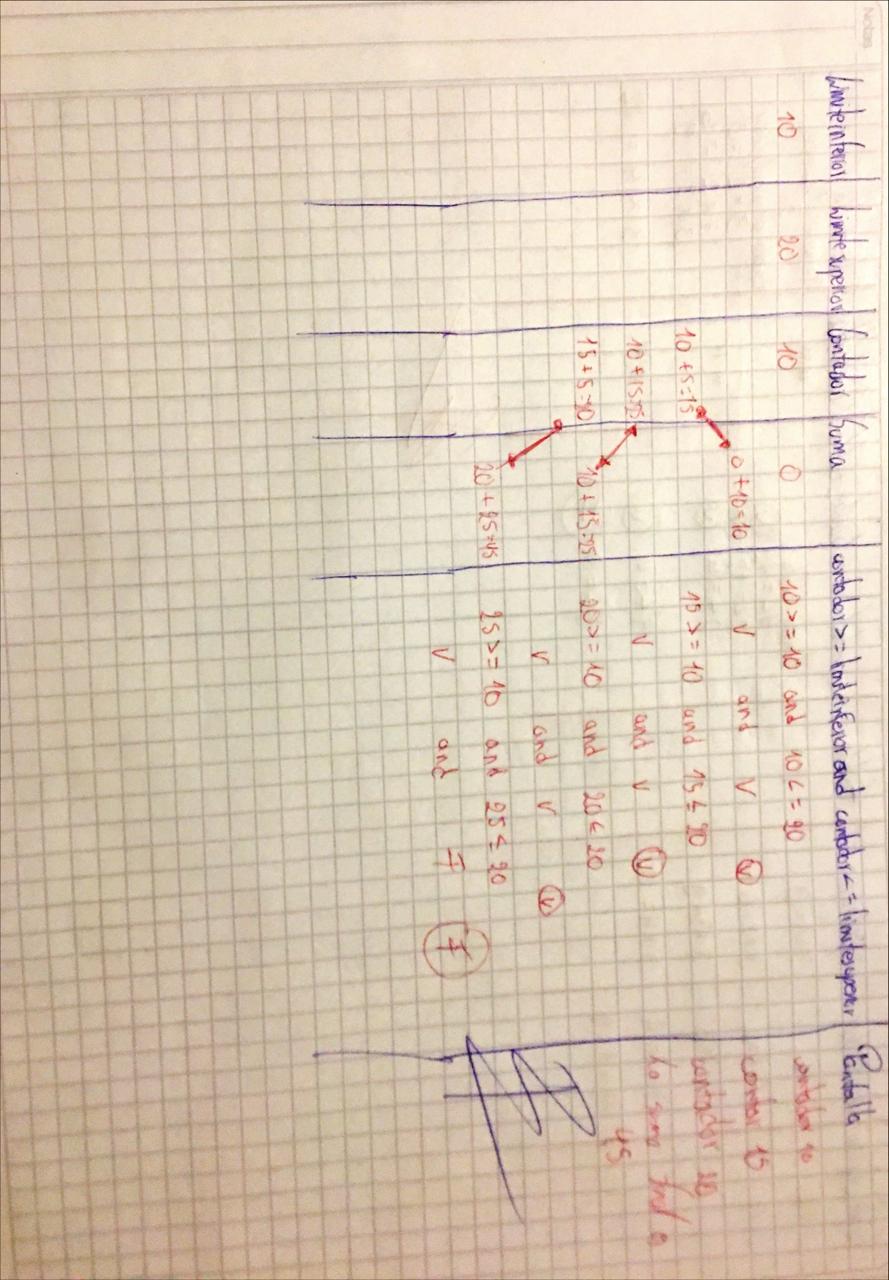 Notas
limiteinferior limite superior Contador Suma contador>=limiteinferior and contador<=limitesuperior Pantalla
10 20 10 0 10>=10 and 10<=20 contador 10
0+10=10 v and v (v) contador 15
10+5=15 15>=10 and 15≤20 contador 20
10+15=25 v and v (v) La suma final es
15+5=20 10+15=25 20>=10 and 20≤20 45
v and v (v)
20+25=45 25>=10 and 25≤20
v and F (F)